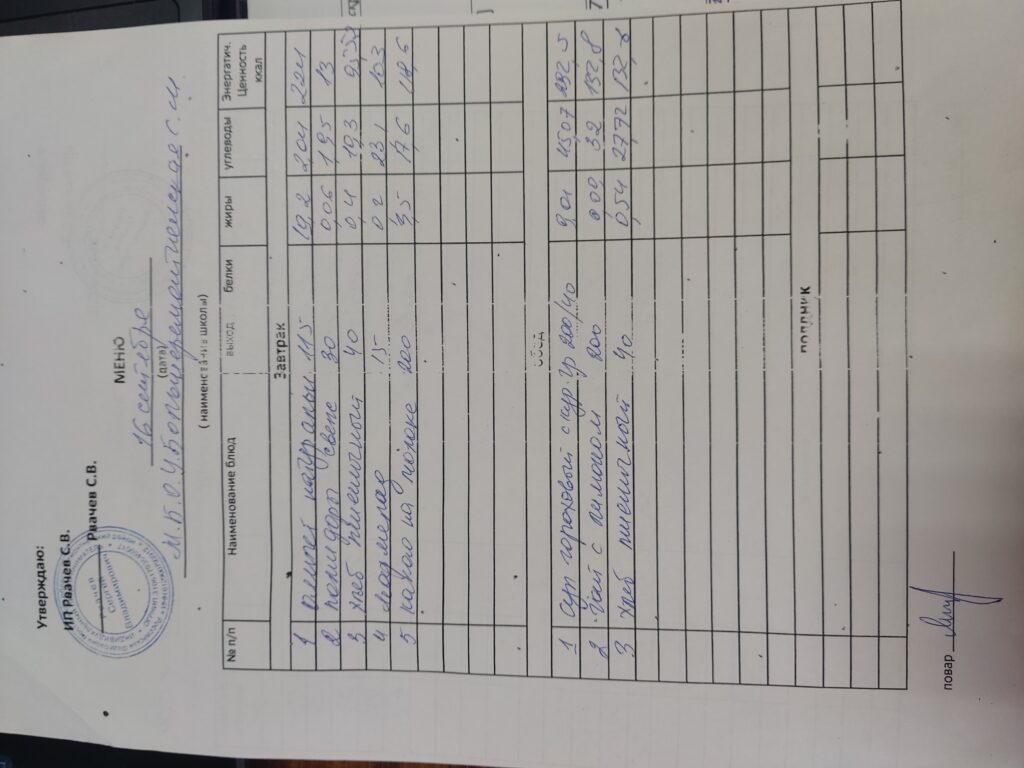 Утверждаю:
ИП Рвачев С.В.
Рвачев С.В.
МЕНЮ
16 сентября
(дата)
М.Б.О.У. Большеремонтненская С.Ш.
( наименование школы)
№ п/п Наименование блюд выход белки жиры углеводы Энергатич. Ценность ккал
Завтрак
1 Омлет натуральн 115 19,2 2,01 221
2 Помидоры свеж 30 0,06 1,95 13
3 Хлеб пшеничный 40 0,4 19,3
4 15 0,2 23,1 103
5 какао на молоке 200 3,5 17,6 118,6
обед
1 Суп гороховый с кур. гр 200/40 9,01 15,07
2 Чай с лимоном 200 0,09 32 132,8
3 Хлеб пшеничный 40 0,54 27,72 132,8
полдник
повар